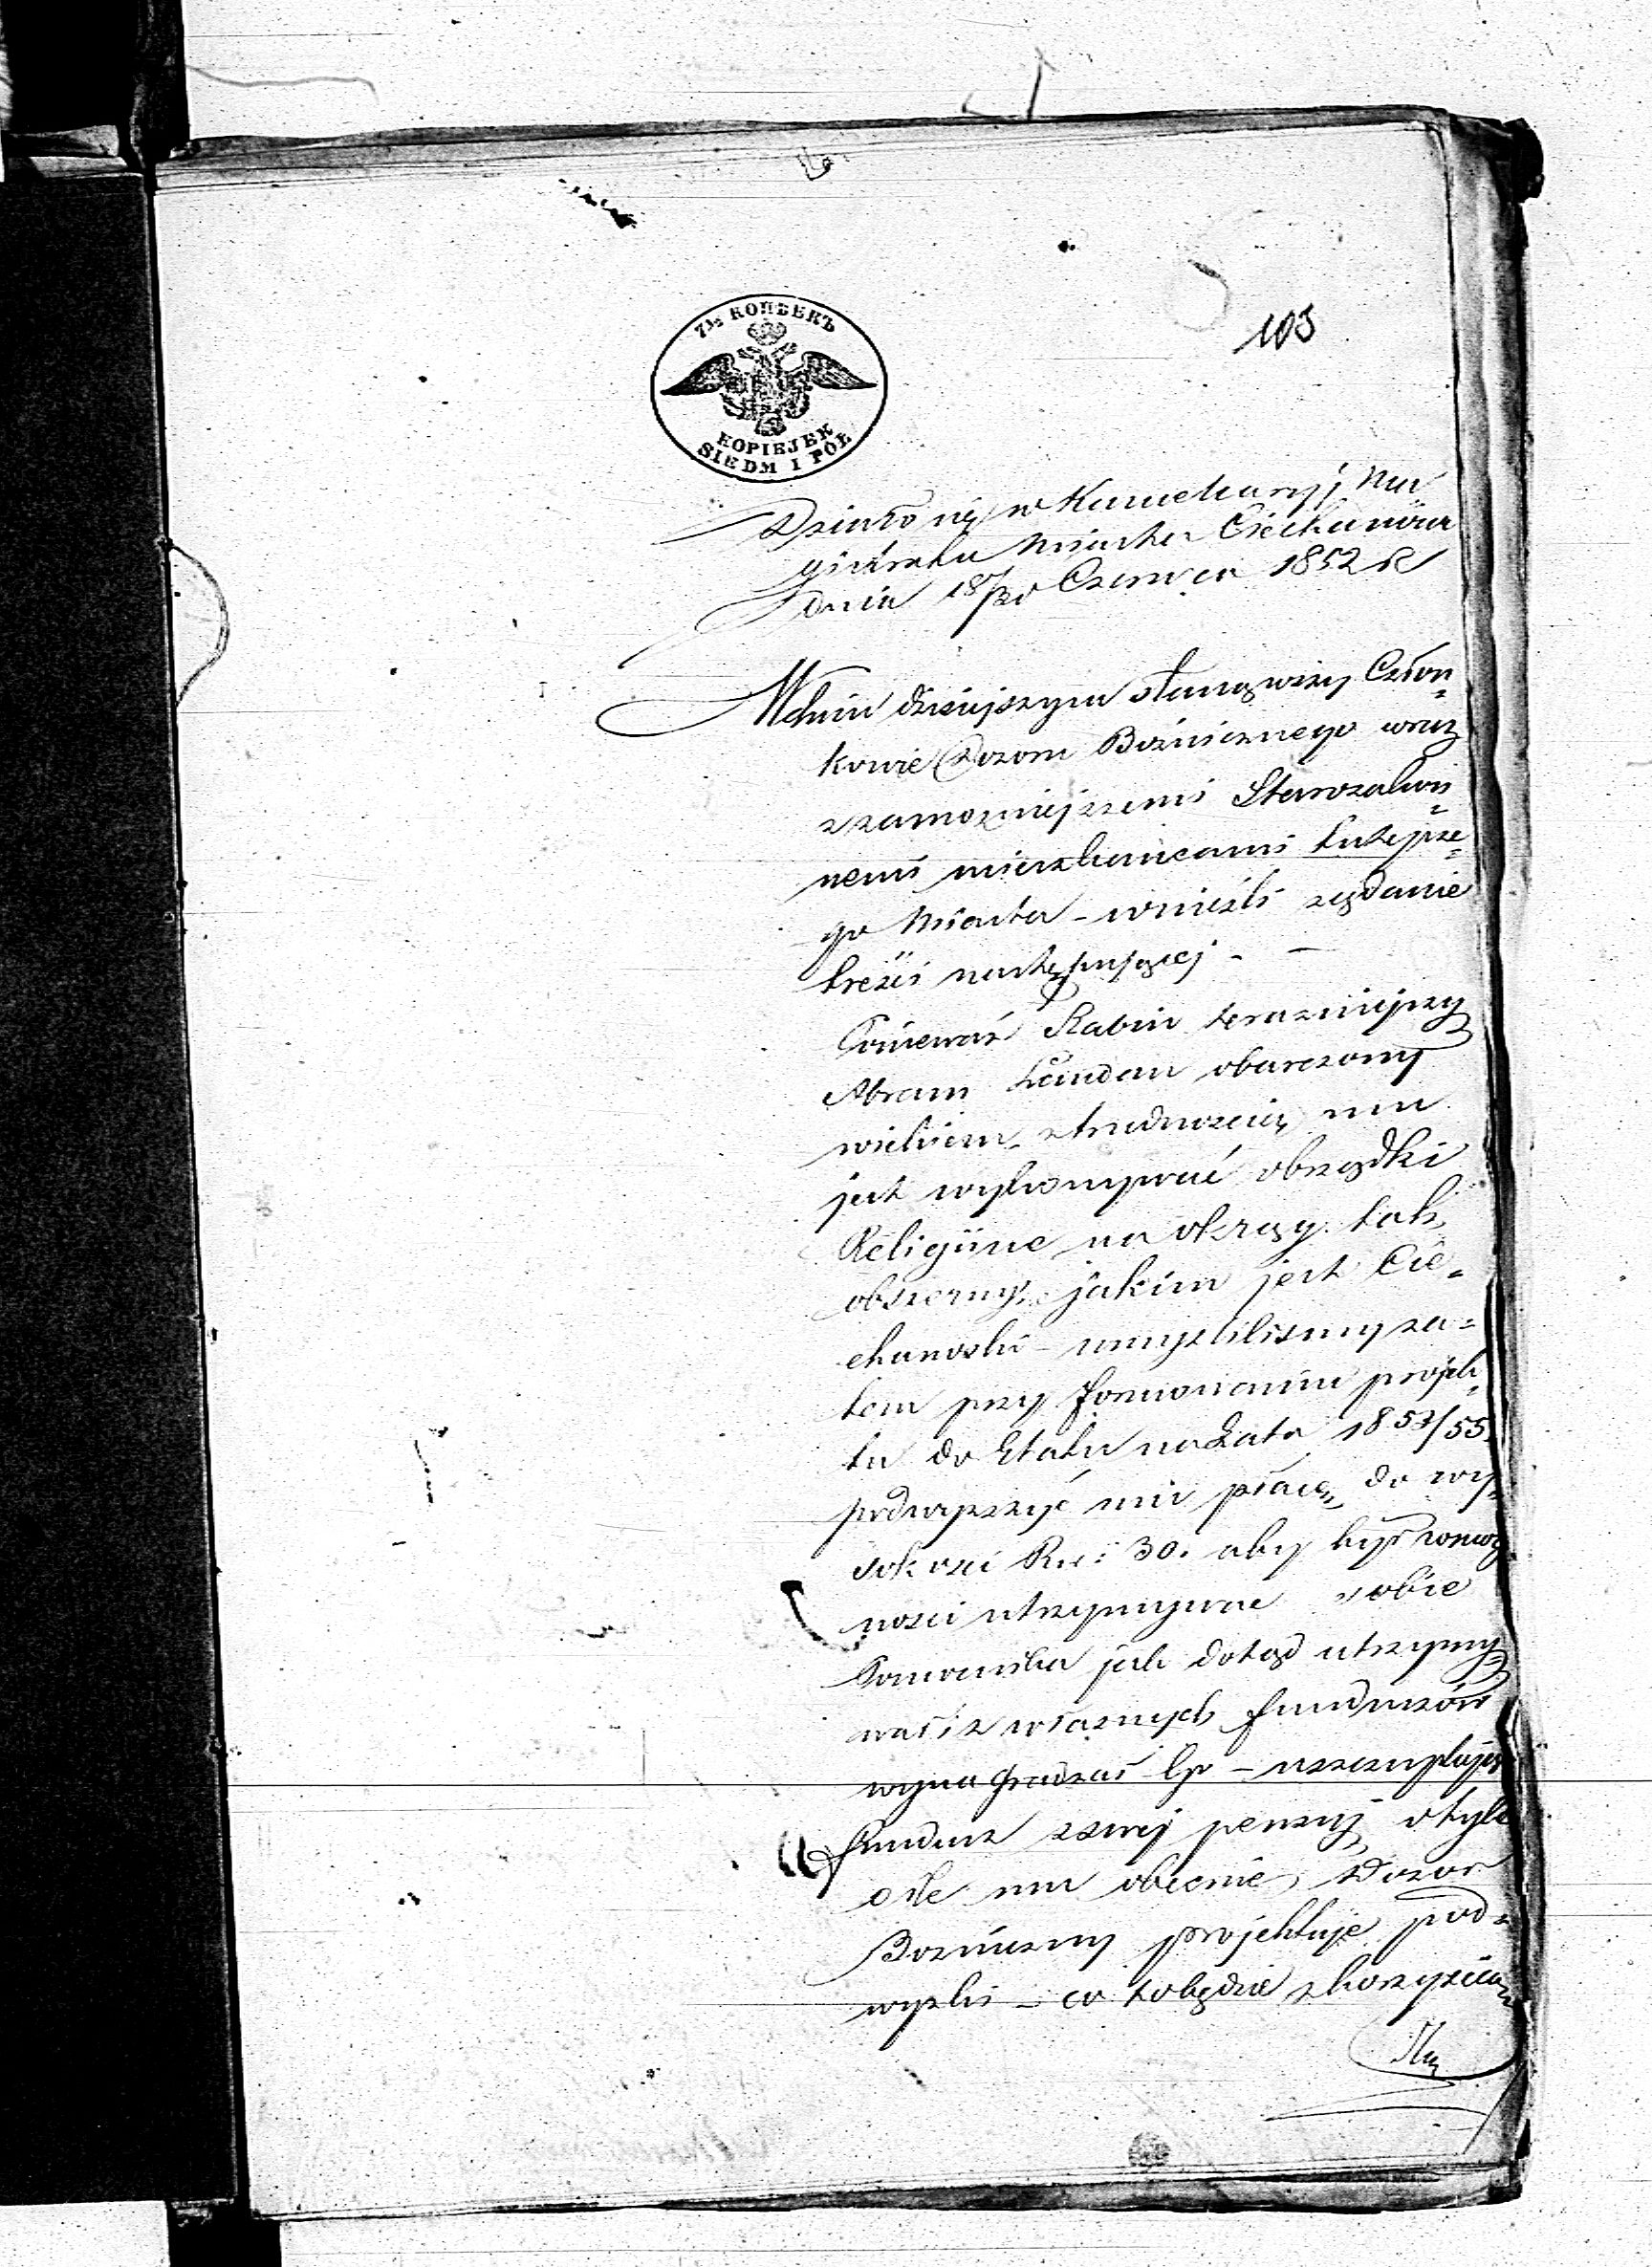 103
7½ КОПѢЕКЪ
KOPIEJEK
SIEDM I PÓŁ
Działo się w Kancelaryj Ma
gistratu Miasta Ciechanowa
dnia 18/30 Czerwca 1852 R
W dniu dzisiejszym stanąwszy Człon=
kowie Dozoru Bożnicznego wraz
z zamożniejszemi Starozakon=
nemi mieszkańcami tutejsze=
go Miasta – wnieśli rządanie
treści następującej –
Ponieważ Rabin teraźniejszy
Abram Landau obarczony
wiekiem z trudnością mu
jest wykonywać obrządki
Religijne na okręg tak
obszerny, jakim jest Cie=
chanoski – umyśliliśmy za=
tem przy formowaniu projek=
tu do Etatu na Lata 1853/55
podwyższyć mu płacę do wy=
sokości Rs: 30. aby był w moż
ności utrzymywać sobie
Pomocnika jak dotąd utrzymy=
wał i z własnych funduszów
wynagradzał Go – uszczuplając
fundusz z swej pensyj o tyle
o ile mu obecnie Dozór
Bożniczny projektuje pod=
wyżki – co to będzie z korzyścią